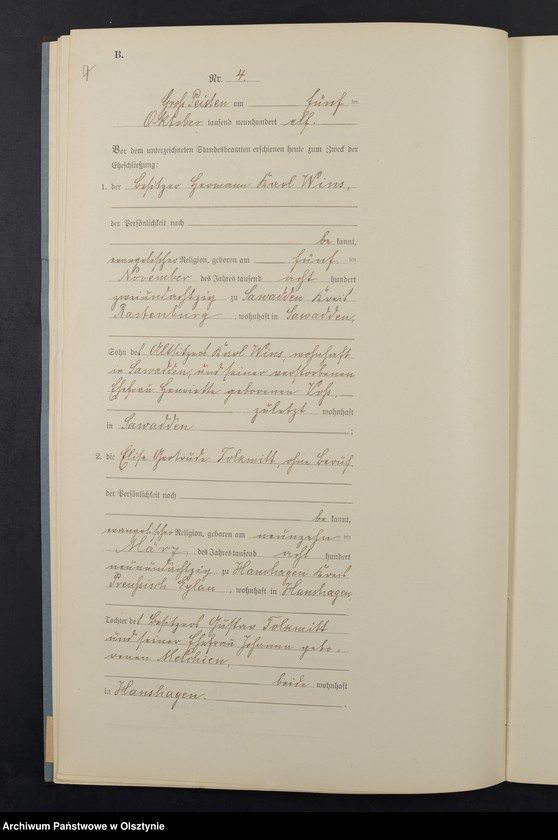 B.
Nr. 4.
Groß Peisten am fünf ten
Oktober tausend neunhundert elf.
Vor dem unterzeichneten Standesbeamten erschienen heute zum Zweck der
Eheschließung:
1. der Besitzer Hermann Karl Wins,
der Persönlichkeit nach
be kannt,
evangelischer Religion, geboren am fünf ten
November des Jahres tausend acht hundert
zweiundachtzig zu Sawadden Kreis
Rastenburg, wohnhaft in Sawadden,
Sohn des Altsitzers Karl Wins, wohnhaft
in Sawadden, und seiner verstorbenen
Ehefrau Henriette geborenen
zuletzt wohnhaft
in Sawadden ;
2. die Elise Gertrude Tolkmitt, ohne Beruf
der Persönlichkeit nach
be kannt,
evangelischer Religion, geboren am neunzehn ten
März des Jahres tausend acht hundert
neunundachtzig zu Hanshagen Kreis
Preußisch Eylau, wohnhaft in Hanshagen
Tochter des Besitzers Gustav Tolkmitt
und seiner Ehefrau Johanna gebo-
renen
beide wohnhaft
in Hanshagen.
Archiwum Państwowe w Olsztynie